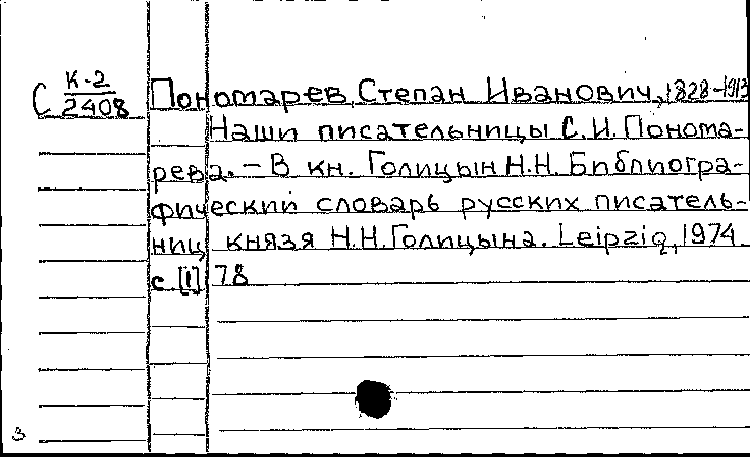 С К-2/2408
Пономарев, Степан Иванович, 1828-1913
Наши писательницы С. И. Понома-
рева. - В кн. Голицын Н.Н. Библиогра-
фический словарь русских писатель-
ниц князя Н.Н.Голицына. Leipzig, 1974
с [1] 78
3